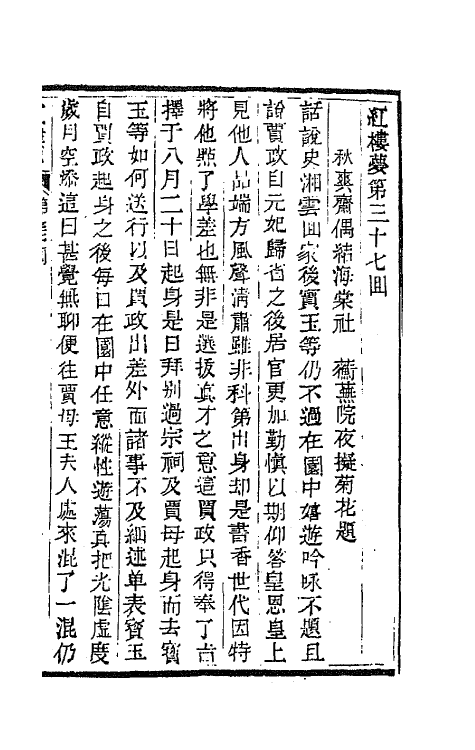 紅樓夢第三十七回
秋爽齋偶結海棠社　蘅蕪院夜擬菊花題
話說史湘雲回家後賈玉等仍不過在園中嬉遊吟咏不題且
說賈政自元妃歸省之後居官更加勤慎以期仰答皇恩皇上
見他人品端方風聲清肅雖非科第出身却是書香世代因特
將他點了學差也無非是選拔真才之意這賈政只得奉了旨
擇于八月二十日起身是日拜别過宗祠及賈母起身而去寶
玉等如何送行以及賈政出差外面諸事不及細述单表寶玉
自賈政起身之後每日在園中任意縱性遊蕩真把光陰虛度
歲月空添這日甚覺無聊便往賈母王夫人處來混了一混仍